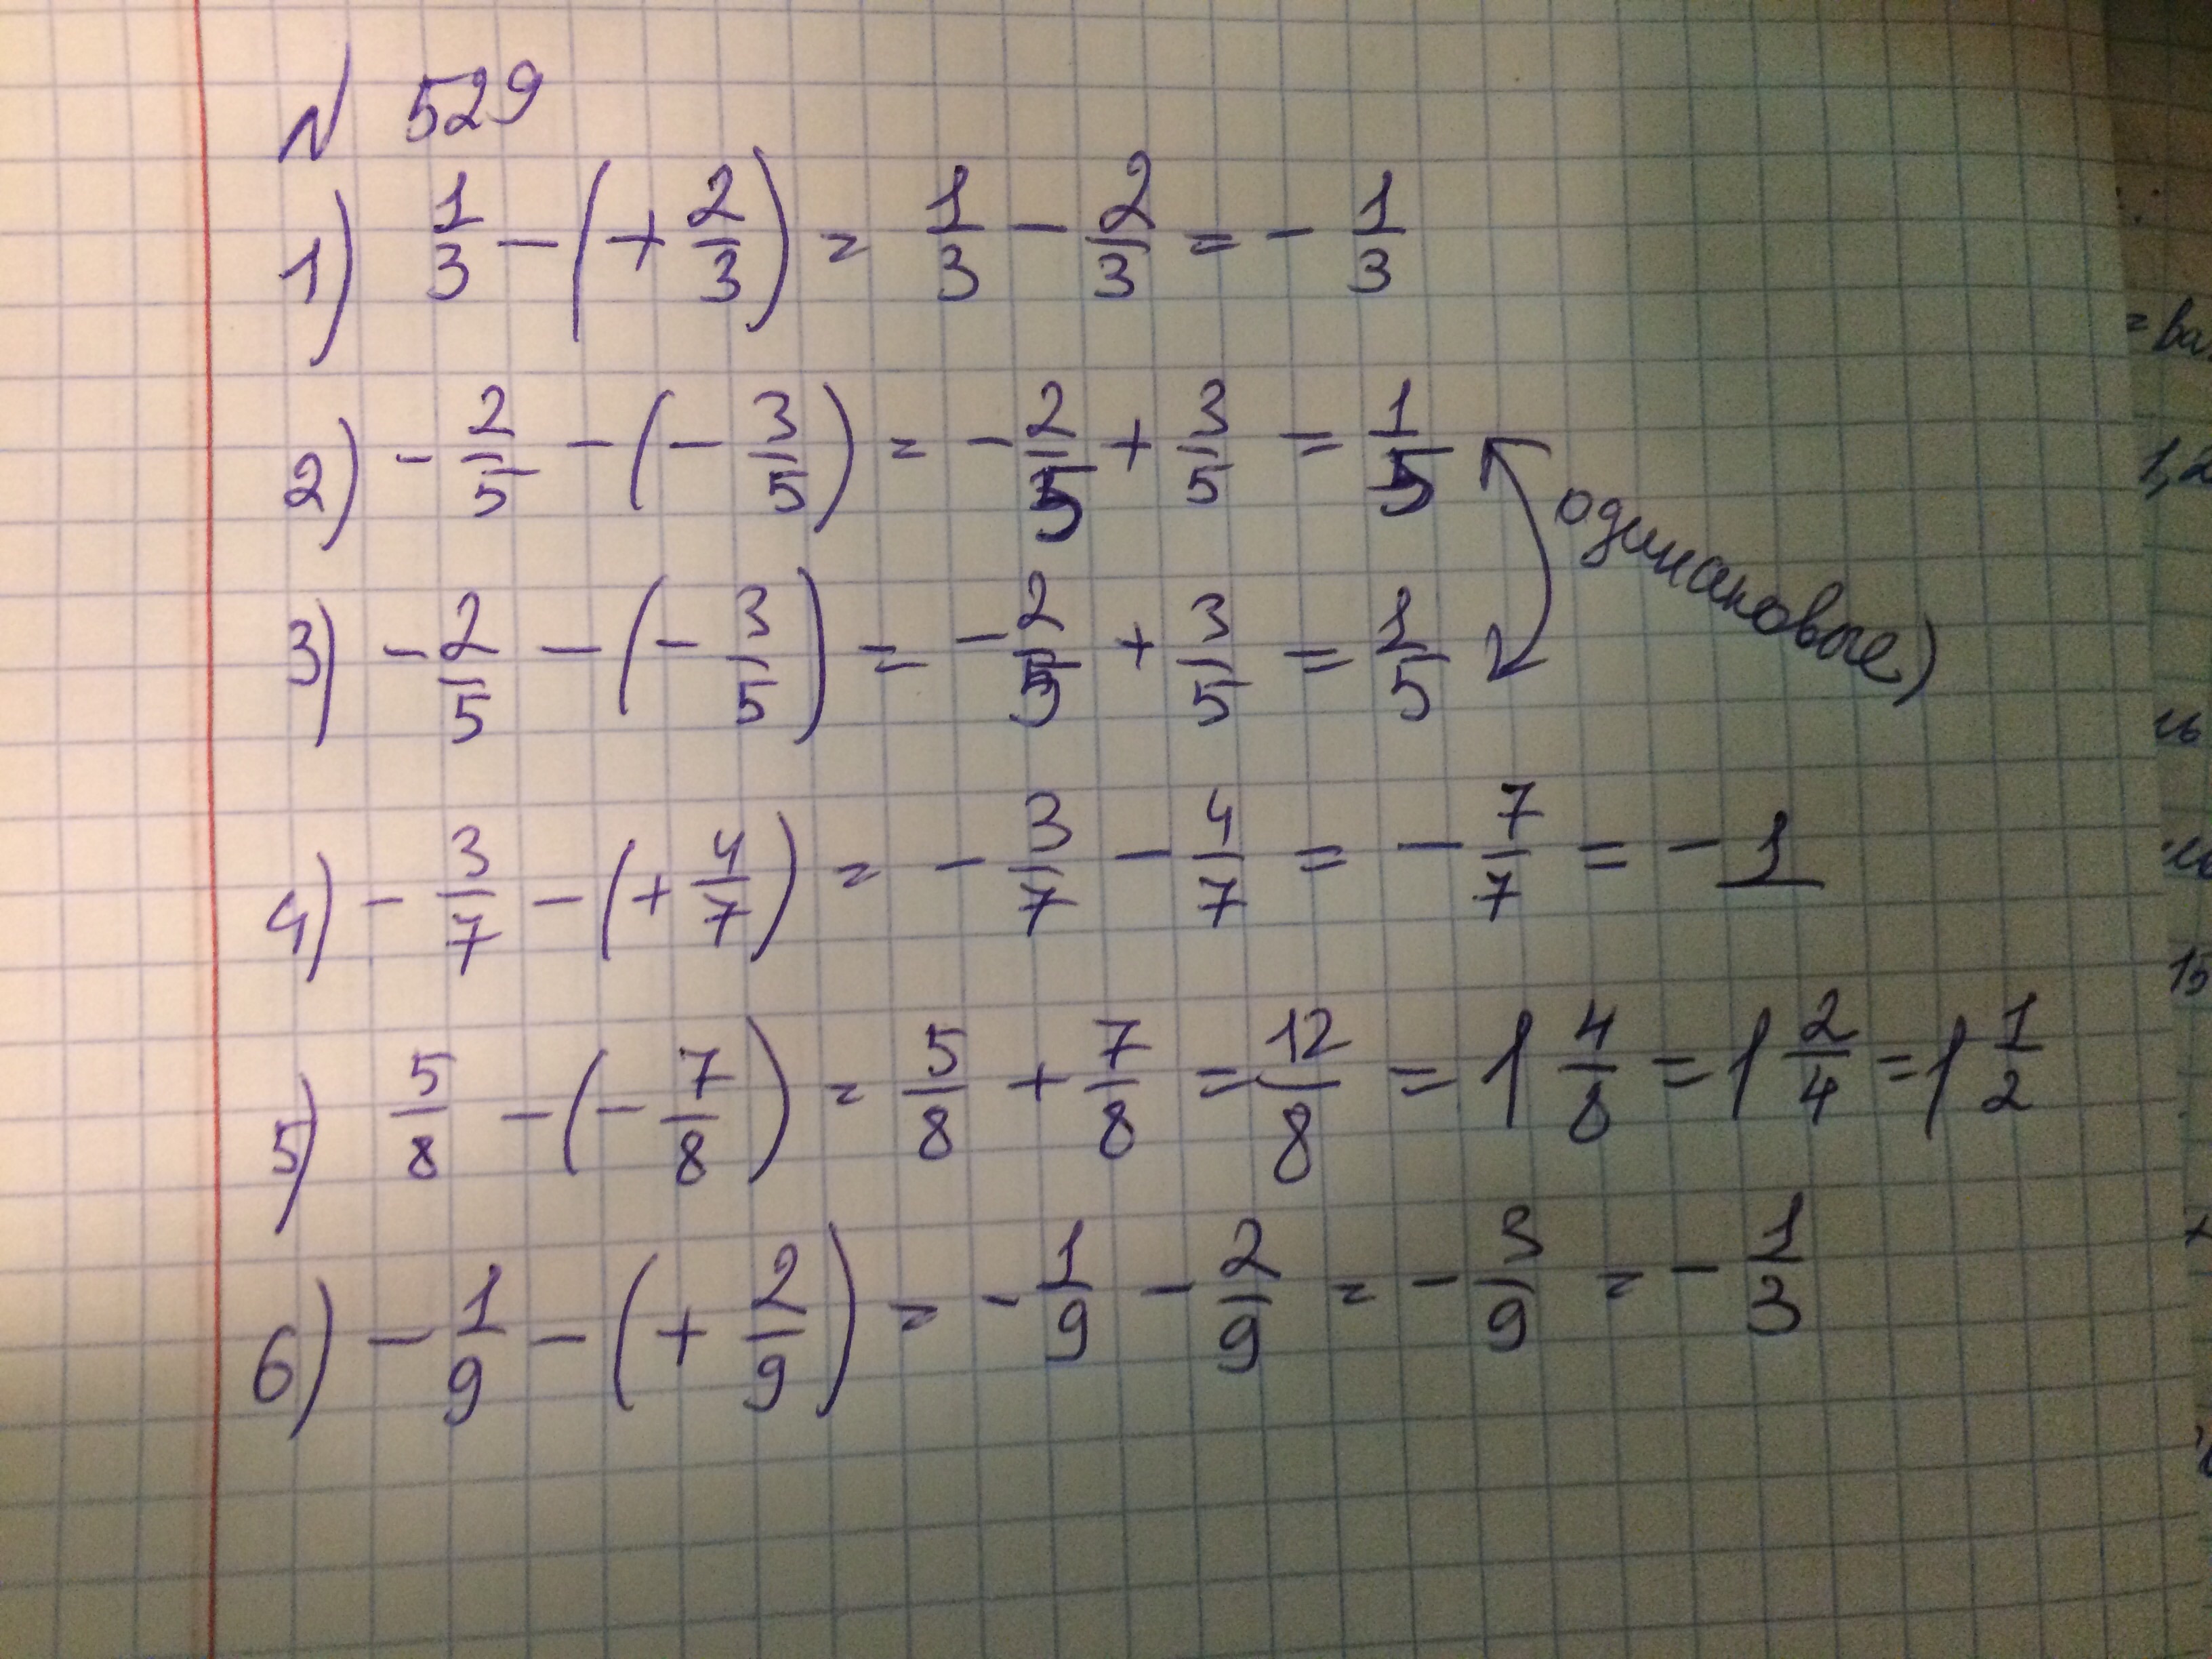 N 529
1) 1/3 - (+ 2/3) = 1/3 - 2/3 = - 1/3
2) - 2/5 - (- 3/5) = - 2/5 + 3/5 = 1/5
одинаковые)
3) - 2/5 - (- 3/5) = - 2/5 + 3/5 = 1/5
4) - 3/7 - (+ 4/7) = - 3/7 - 4/7 = - 7/7 = - 1
5) 5/8 - (- 7/8) = 5/8 + 7/8 = 12/8 = 1 4/8 = 1 2/4 = 1 1/2
6) - 1/9 - (+ 2/9) = - 1/9 - 2/9 = - 3/9 = - 1/3